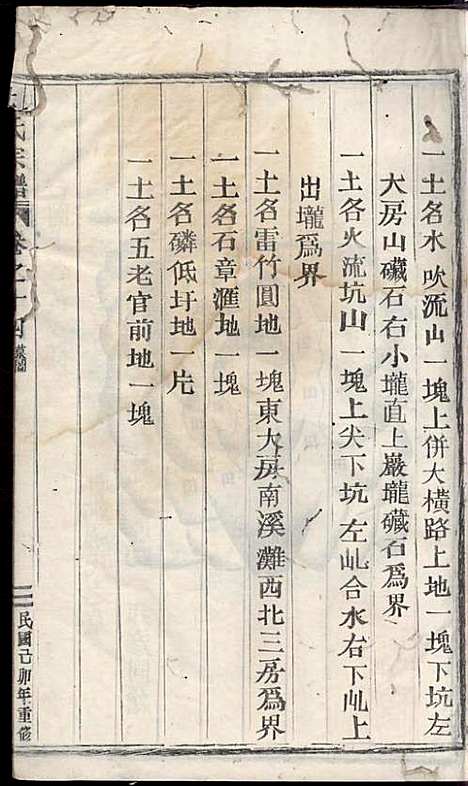 一土名水吹流山一塊上併大橫路上地一塊下坑左
大房山礮石右小壠直上巖壠礮石爲界
一土名火流坑山一塊上尖下坑左乢合水右下乢上
出壠爲界
一土名雷竹圓地一塊東大房南溪灘西北三房爲界
一土名石章滙地一塊
一土名磷低圩地一片
一土名五老官前地一塊
氏宗譜 卷之十四 墓圖 二 民國己卯年重修